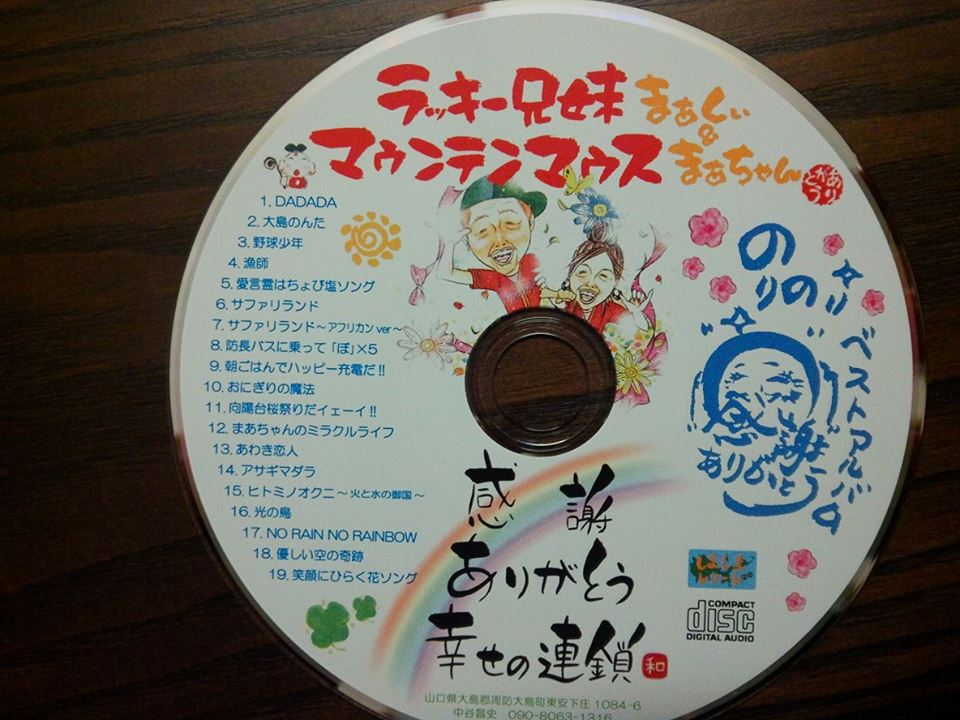 ラッキー兄妹 まぁしぃ
&
マウンテンマウス まぁちゃん
ありがとう
1. DADADA
2. 大島のんた
3. 野球少年
4. 漁師
5. 愛言霊はちょび塩ソング
6. サファリランド
7. サファリランド～アフリカン ver～
8. 防長バスに乗って「ぽ」×5
9. 朝ごはんでハッピー充電だ!!
10. おにぎりの魔法
11. 向陽台桜祭りだイェーイ!!
12. まあちゃんのミラクルライフ
13. あわき恋人
14. アサギマダラ
15. ヒトミノオクニ～火と水の御国～
16. 光の鳥
17. NO RAIN NO RAINBOW
18. 優しい空の奇跡
19. 笑顔にひらく花ソング
のりのり
ベストアルバム
感謝
ありがとう
感謝
ありがとう
幸せの連鎖
和
COMPACT
disc
DIGITAL AUDIO
山口県大島郡周防大島町東安下庄 1084-6
中谷昌史 090-8063-1316